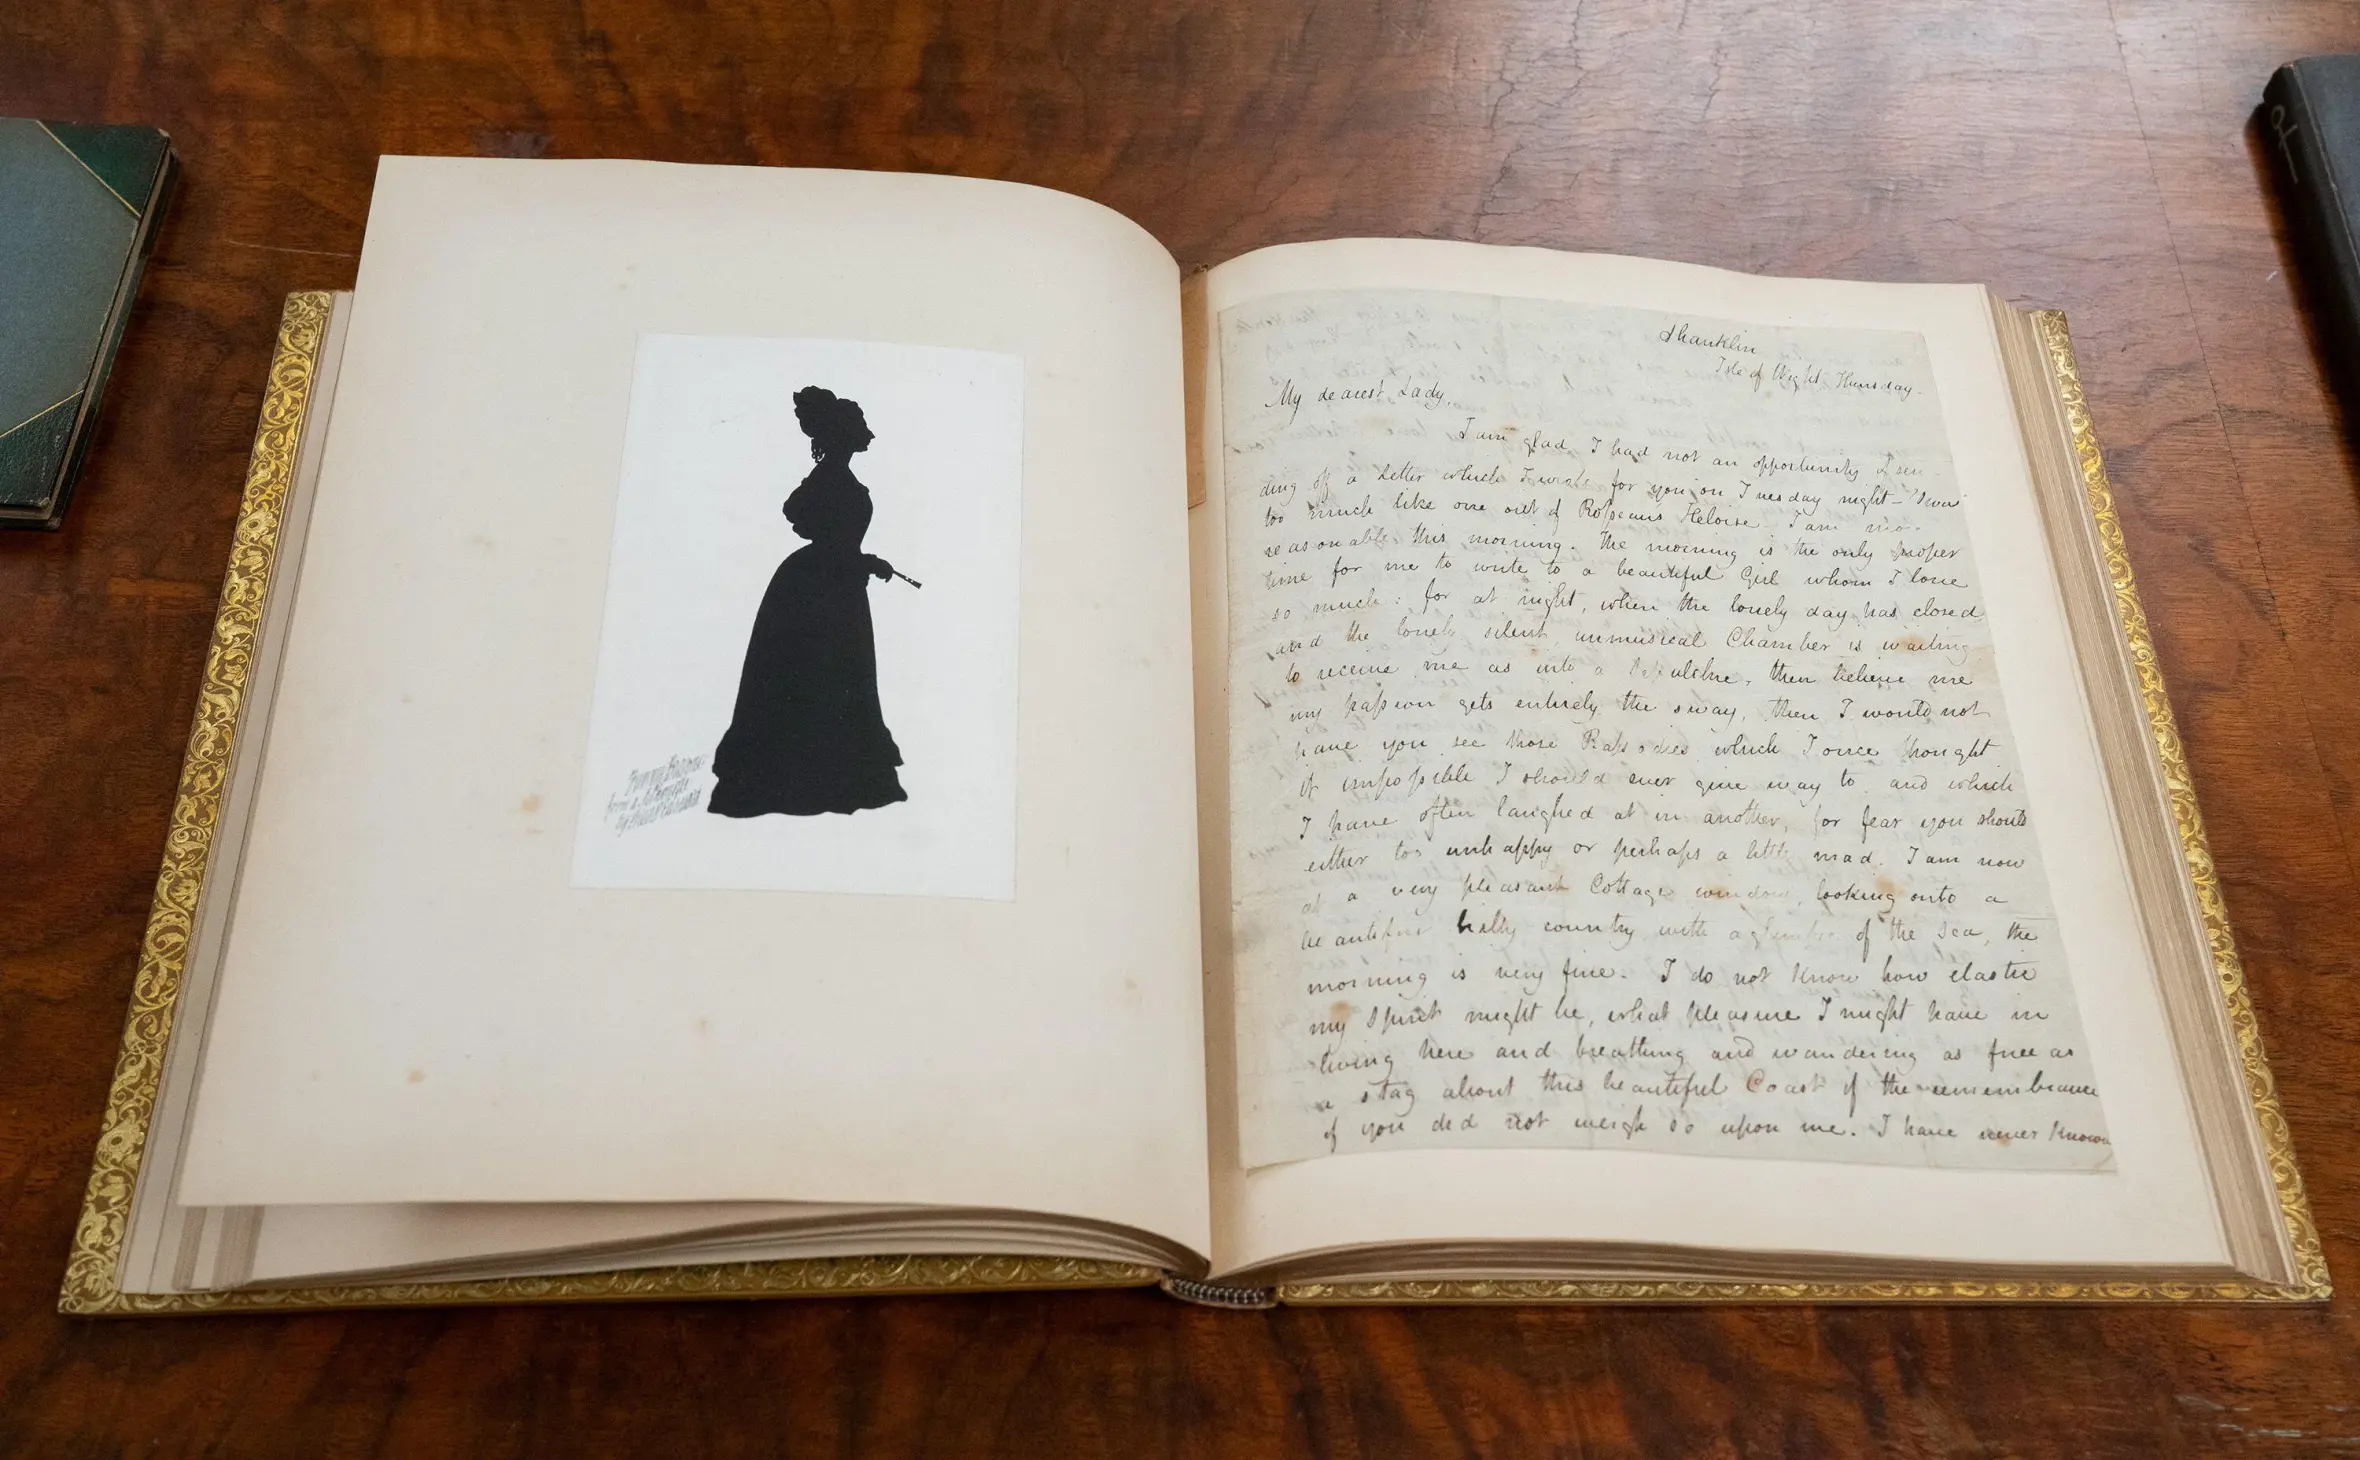 Fanny Brawne
from a silhouette
by
Shanklin
Isle of Wight Thursday.
My dearest Lady,
I am glad I had not an opportunity of sen-
ding off a Letter which I wrote for you on Tuesday night-
too much like one out of Roſseau's Heloise- I am
reasonable this morning. The morning is the only proper
time for me to write to a beautiful Girl whom I love
so much: for at night, when the lonely day has closed
and the lonely silent, unmusical Chamber is waiting
to receive me as into a Sepulchre, then believe me
my paſsion gets entirely the sway, then I would not
have you see those Rapsodies which I once thought
it impoſsible I should ever give way to and which
I have often laughed at in another, for fear you should
either too unhappy or perhaps a little mad. I am now
at a very pleasant Cottage window, looking onto a
beautiful hilly country with a glimpse of the sea, the
morning is very fine. I do not know how elastic
my Spirit might be, what pleasure I might have in
living here and breathing and wandering as free as
a stag about this beautiful Coast if the remembrance
of you did not weigh so upon me. I have never known